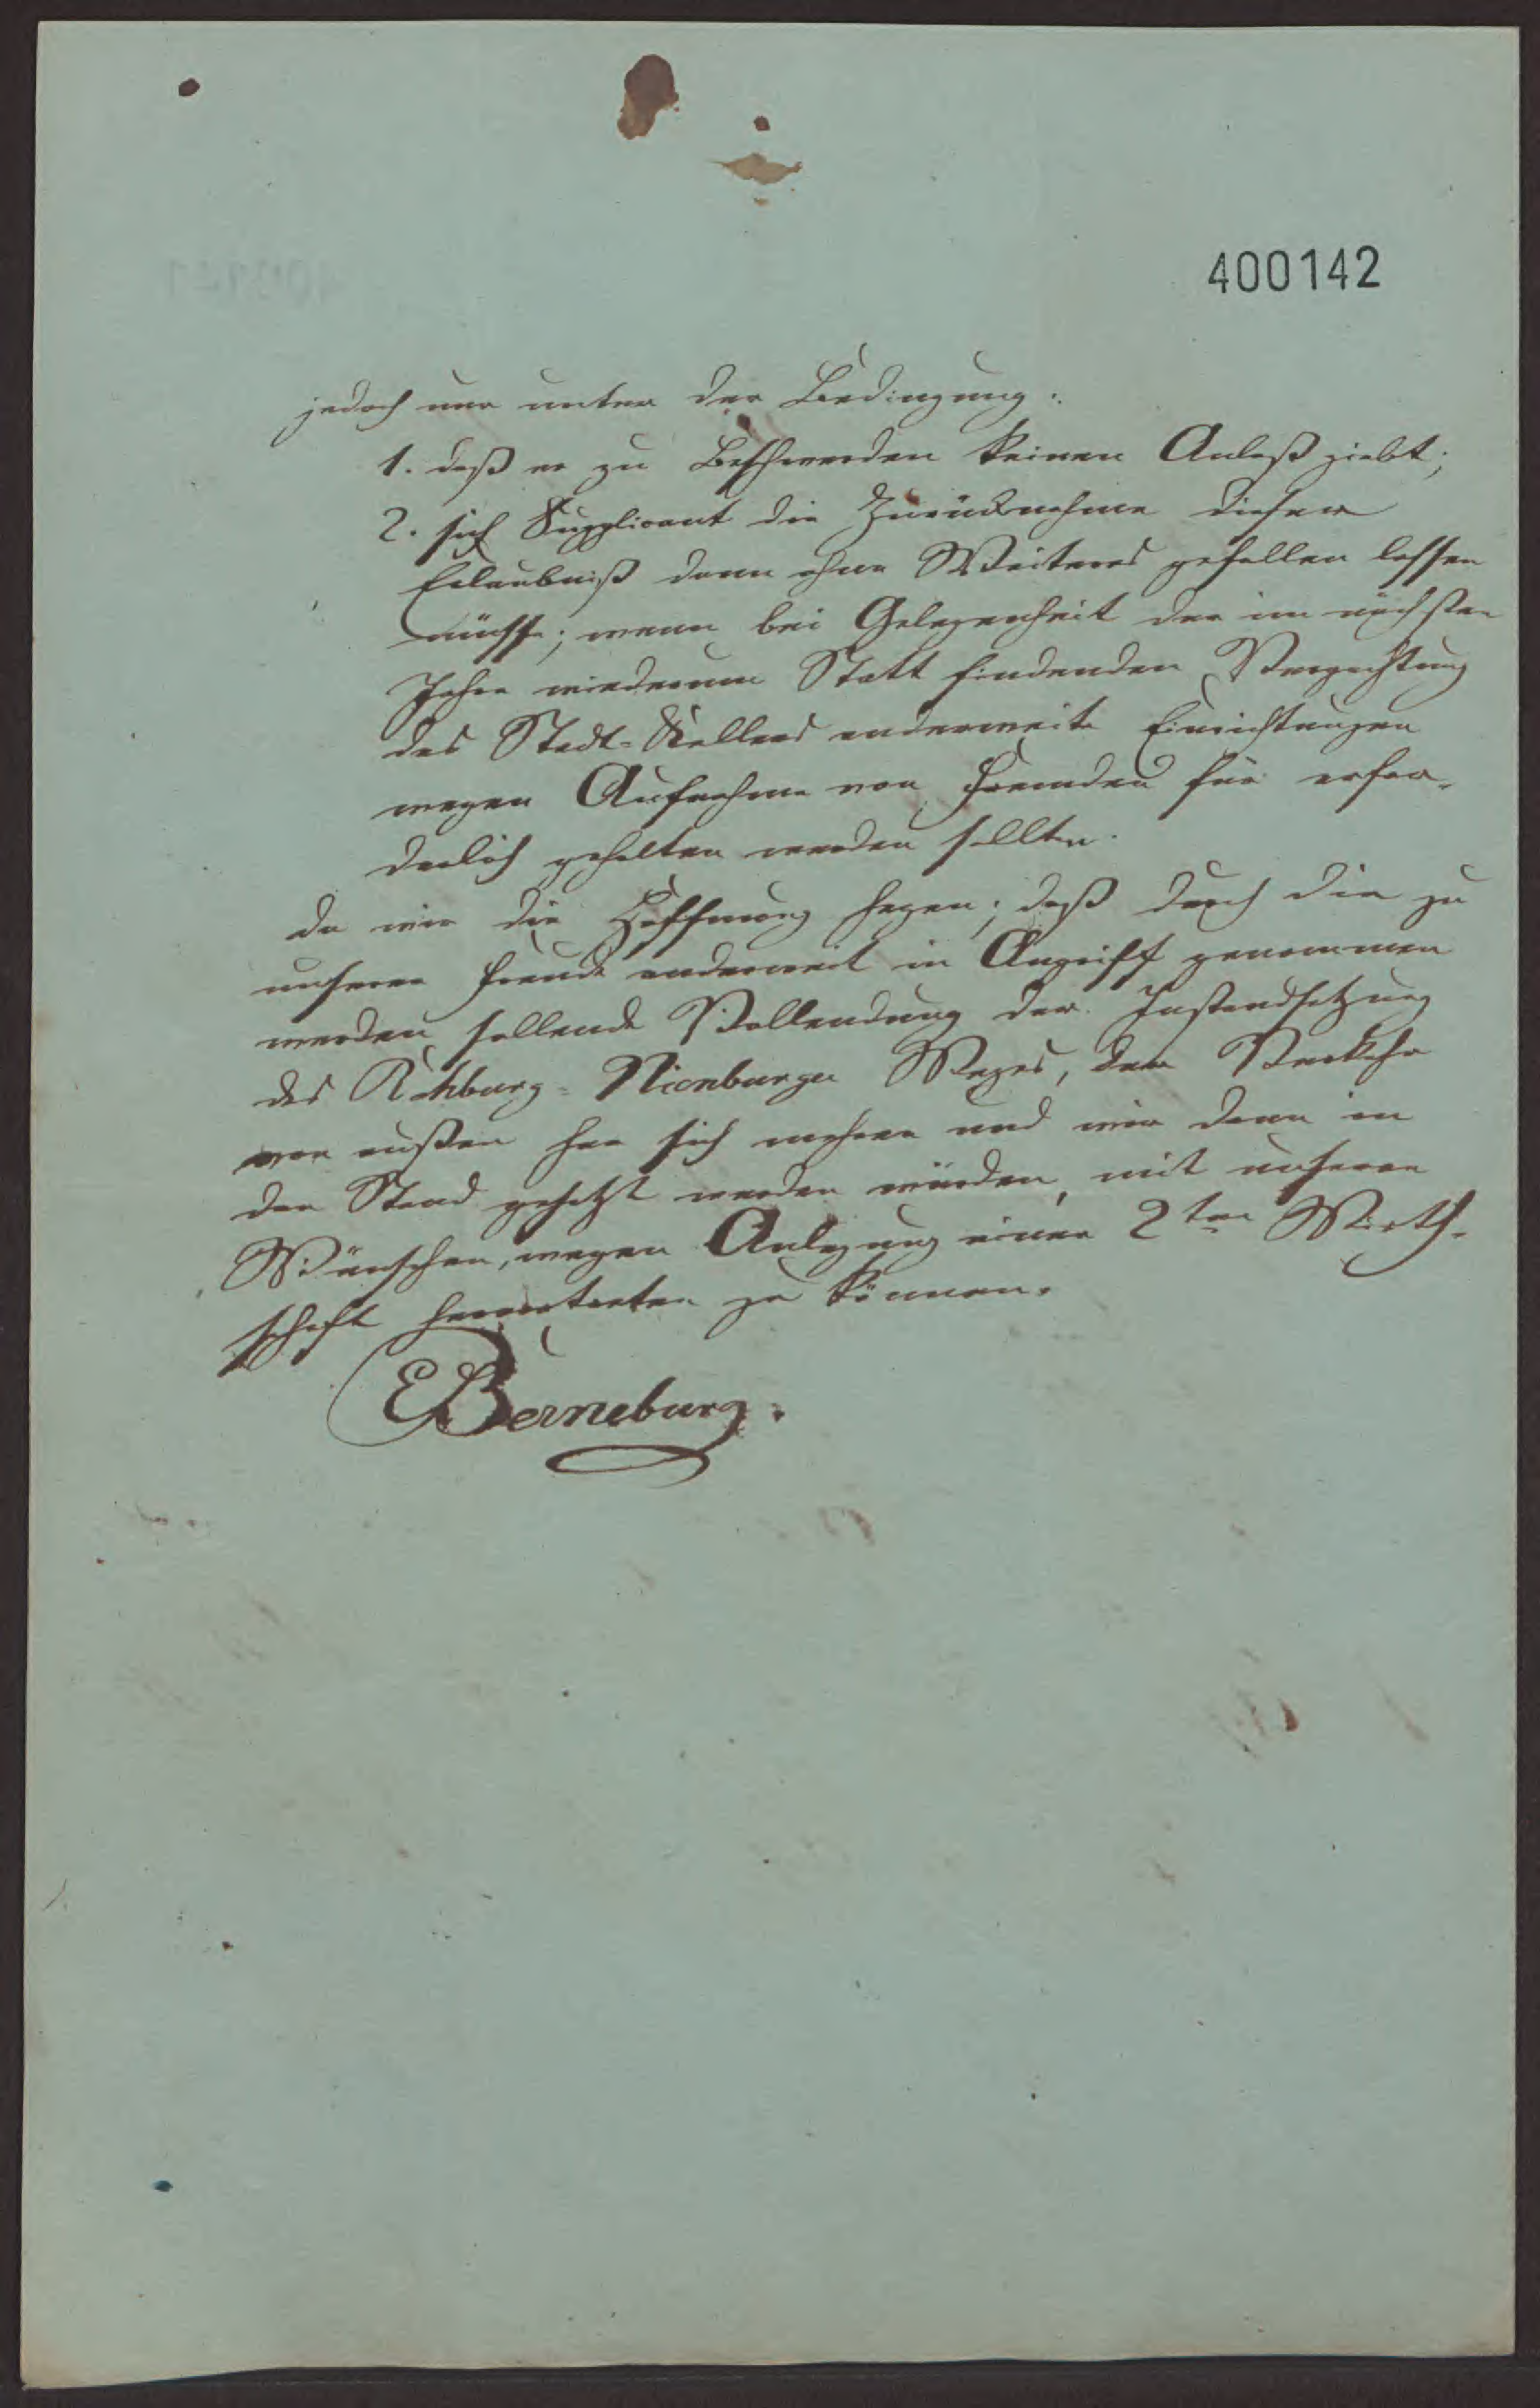 400142
jedoch nur unter der Bedingung:
1. daß er zu Beschwerden keinen Anlaß giebt;
2. sich Supplicant die Zurücknahme dieser
Erlaubniß dann ohne Weiteres gefallen lassen
müsse; wenn bei Gelegenheit der im nächsten
Jahre wiederum Statt findenden Verpachtung
des Stadt-Kellers anderweite Einrichtungen
wegen Aufnahme von Fremden für erfor-
derlich gehalten werden sollten.
da wir die Hoffnung hegen; daß durch die zu
unserer Freude anderweit in Angriff genommen
werden sollende Vollendung der Instandsetzung
des Rehburg-Nienburger Weges, der Verkehr
von außen her sich mehren und wir dann in
den Stand gesetzt werden würden, mit unseren
Wünschen, wegen Anlegung einer 2ten Wirth-
schaft hervortreten zu können.
EBerneburg.